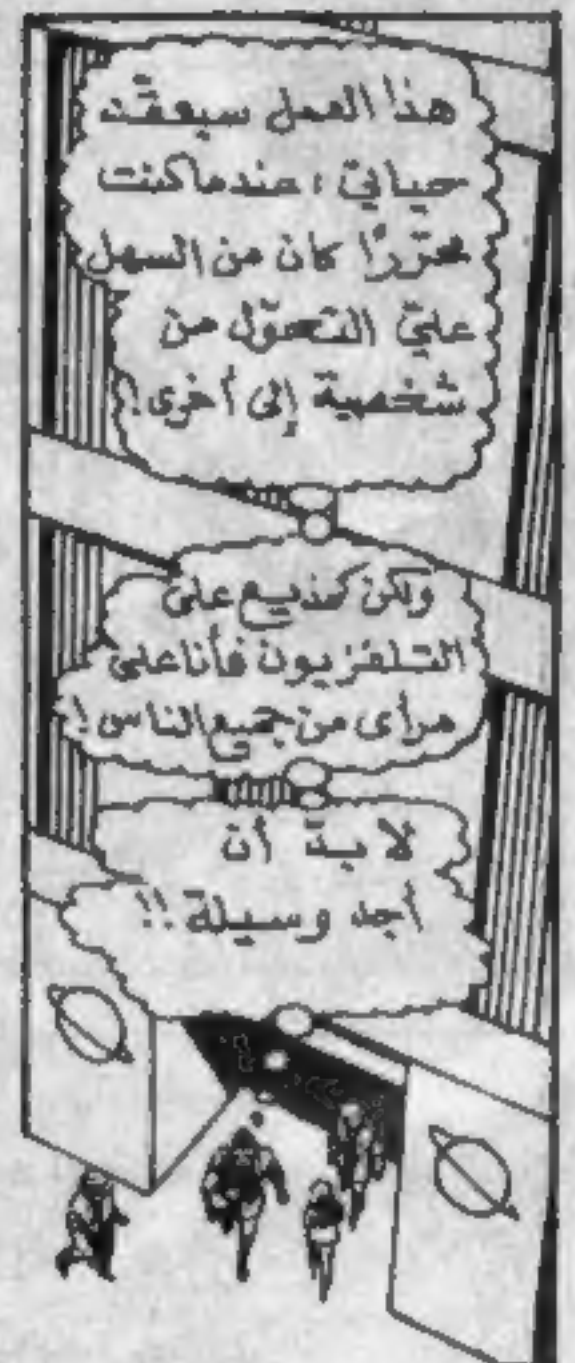 هذا العمل سيعقّد
حياتي، عندما كنت
محرّرًا كان من السهل
عليّ التحوّل من
شخصية إلى أخرى!
ولكن كمذيع على
التلفزيون فأنا على
مرأى من جميع الناس!
لا بدّ أن
أجد وسيلة!!